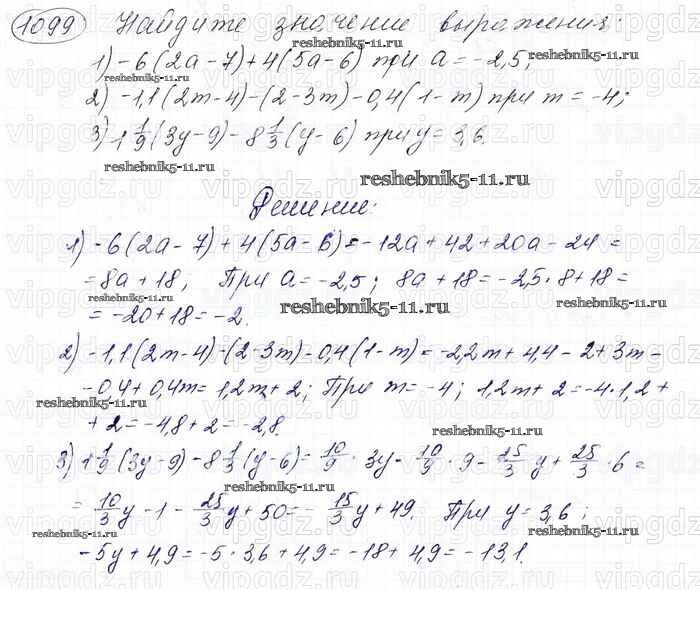 1099 Найдите значение выражения:
reshebnik5-11.ru
1) -6(2a-7)+4(5a-6) при a=-2,5;
2) -1,1(2m-4)-(2-3m)-0,4(1-m) при m=-4;
3) 1 1/9 (3y-9)-8 1/3 (y-6) при y=3,6.
reshebnik5-11.ru
reshebnik5-11.ru
Решение:
1) -6(2a-7)+4(5a-6)=-12a+42+20a-24=
=8a+18; При a=-2,5; 8a+18=-2,5·8+18=
reshebnik5-11.ru reshebnik5-11.ru reshebnik5-11.ru
=-20+18=-2.
2) -1,1(2m-4)-(2-3m)-0,4(1-m)=-2,2m+4,4-2+3m-
-0,4+0,4m=1,2m+2; При m=-4; 1,2m+2=-4·1,2+
reshebnik5-11.ru
+2=-4,8+2=-2,8.
reshebnik5-11.ru
3) 1 1/9 (3y-9)-8 1/3 (y-6)=10/9·3y-10/9·9-25/3y+25/3·6=
reshebnik5-11.ru
=10/3y-1-25/3y+50=-15/3y+49. При y=3,6;
reshebnik5-11.ru reshebnik5-11.ru
-5y+4,9=-5·3,6+4,9=-18+4,9=-13,1.
vipgdz.ru